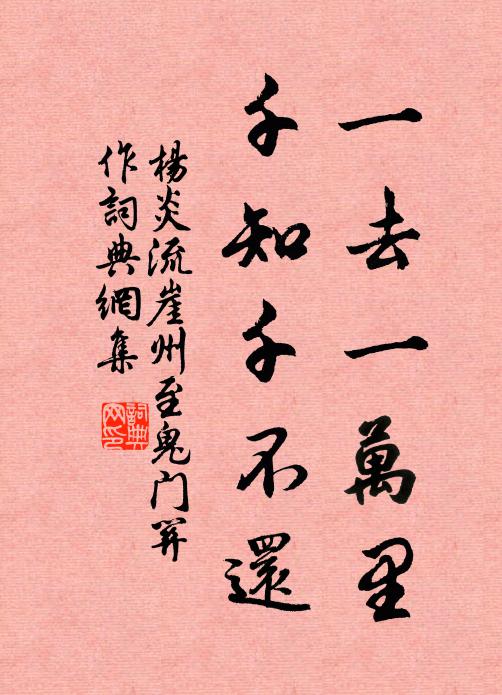 一去一萬里
千知千不還
楊炎流崖州至鬼门关
作詞典網集
詞典网印